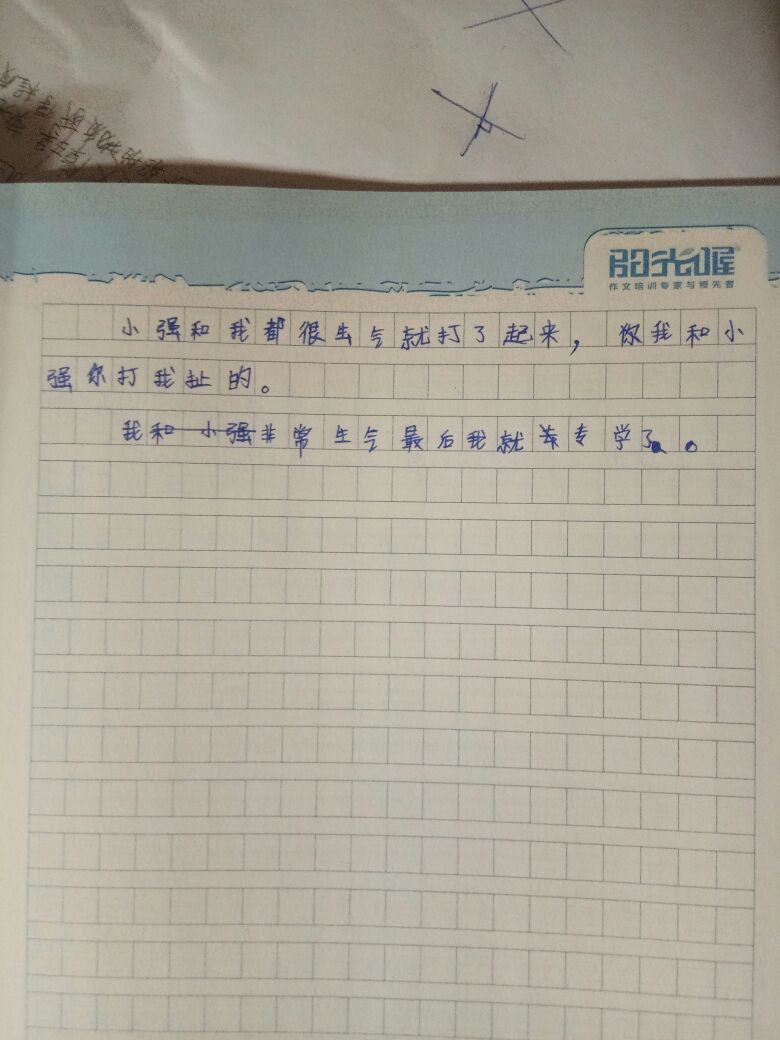 阳光喔
作文培训专家与领先者
小强和我都很生气就打了起来，你我和小
强你打我扯的。
我和小强非常生气最后我就专学了。